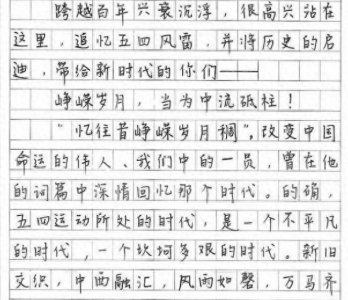 跨越百年兴衰沉浮，很高兴站在
这里，追忆五四风雷，并将历史的启
迪，带给新时代的你们——
峥嵘岁月，当为中流砥柱！
“忆往昔峥嵘岁月稠”，改变中国
命运的伟人、我们中的一员，曾在他
的词篇中深情回忆那个时代。的确，
五四运动所处的时代，是一个不平凡
的时代，一个坎坷多艰的时代。新旧
交织，中西融汇，风雨如磐，万马齐